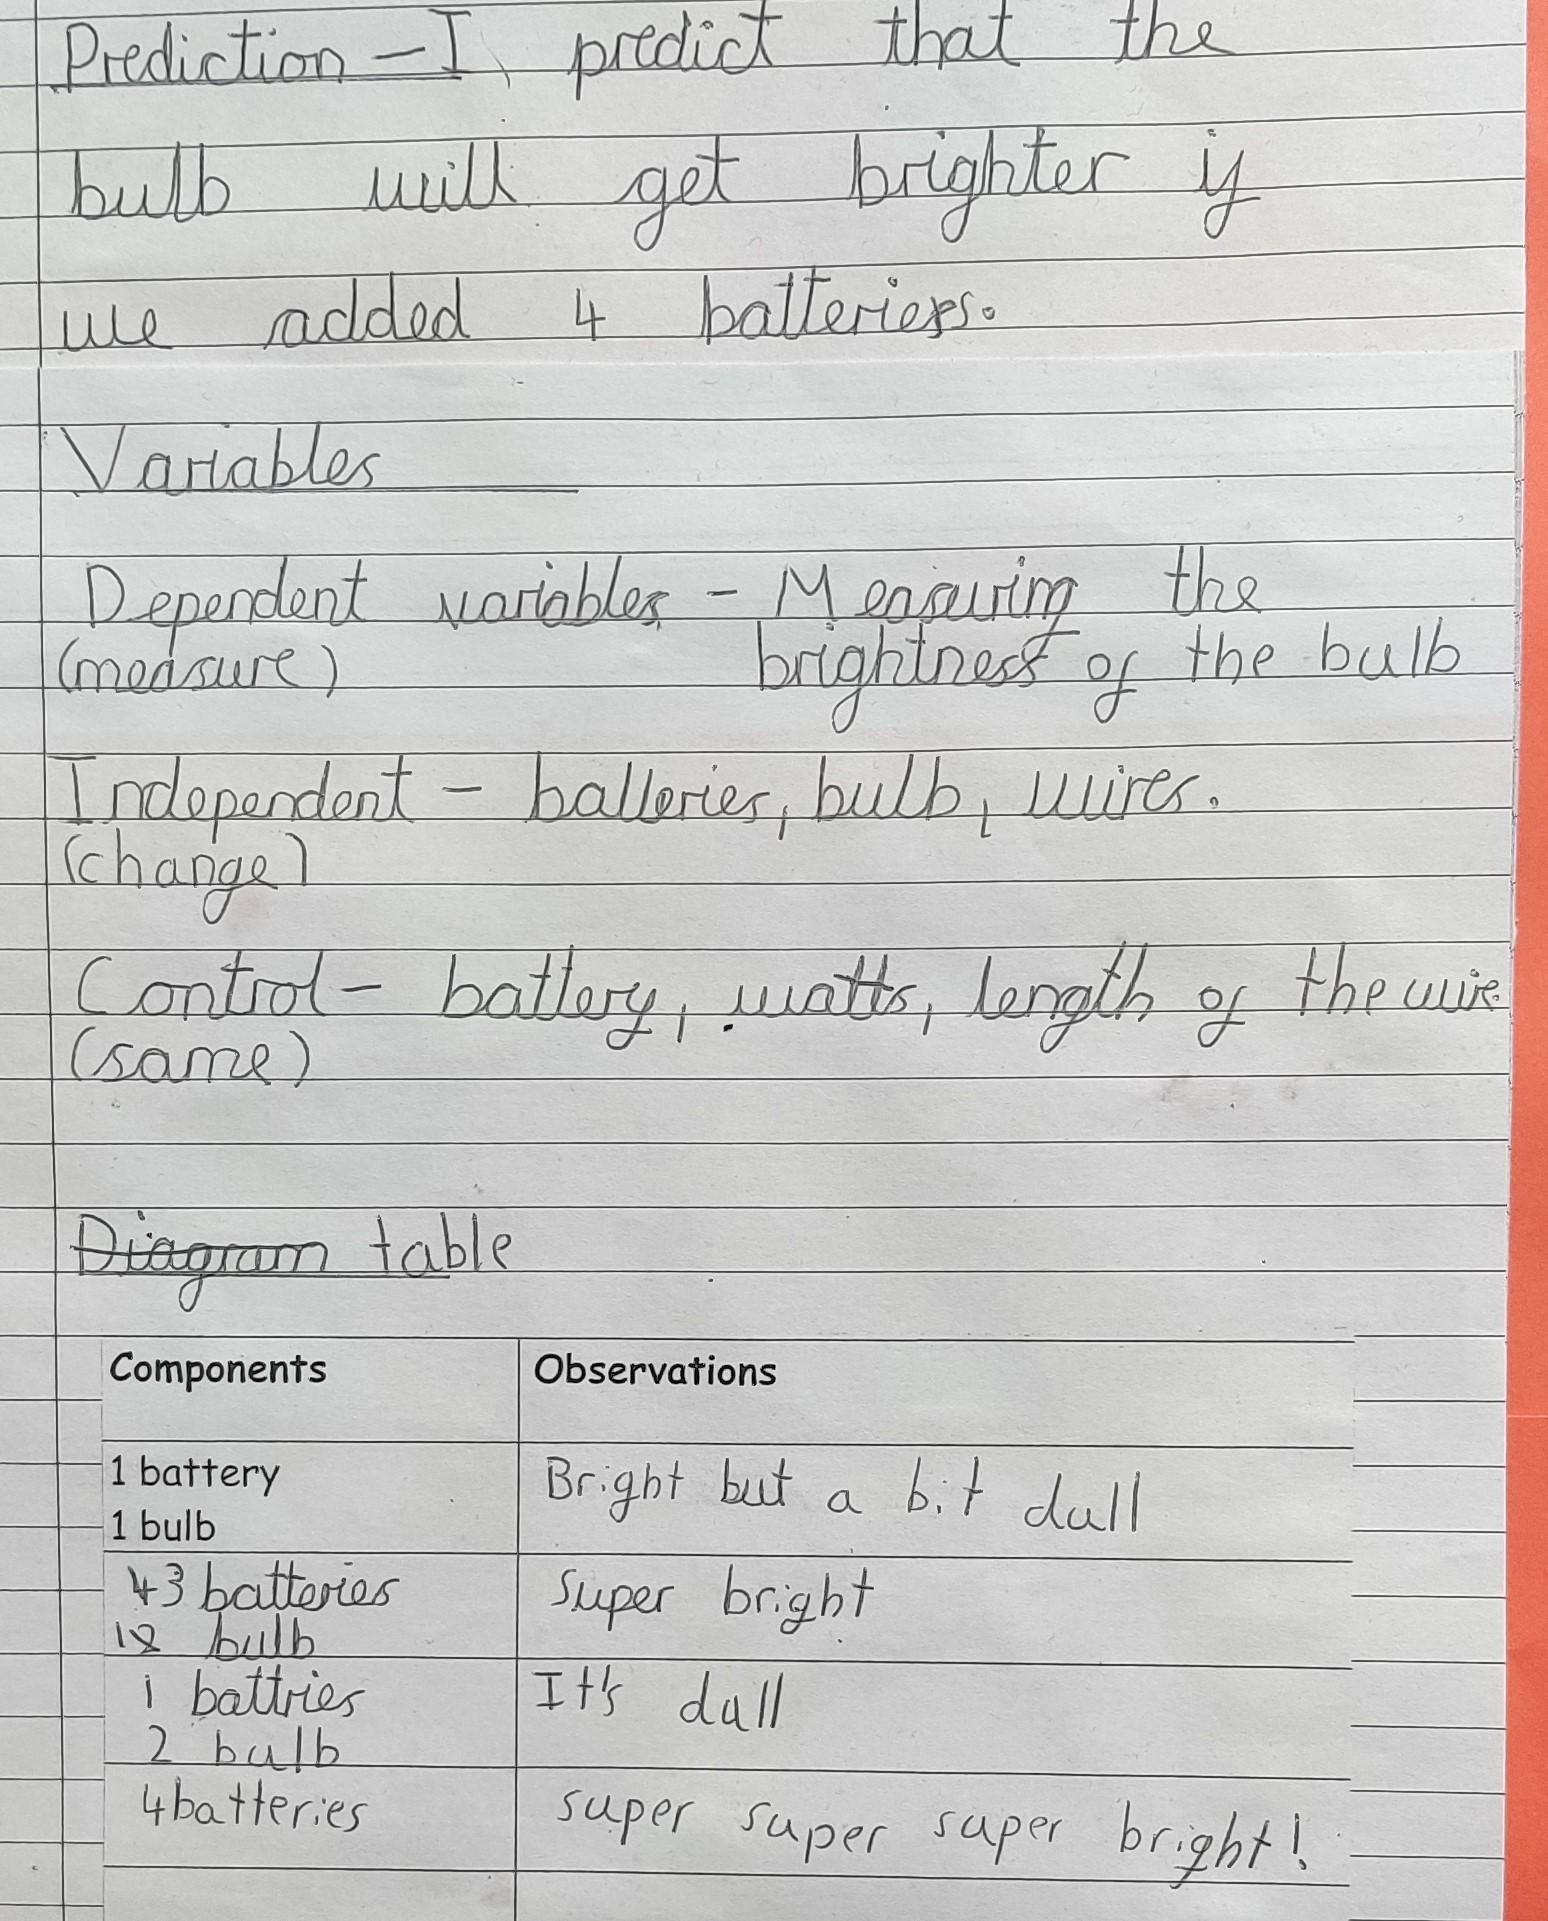 Prediction - I predict that the
bulb will get brighter if
we added 4 batteries.
Variables
Dependent variables - Measuring the
(measure) brightness of the bulb
Independent - balleries, bulb, wires.
(change)
Control - battery, watts, length of the wire
(same)
Diagram table
Components Observations
1 battery Bright but a bit dull
1 bulb
3 batteries super bright
bulb
1 battries It's dull
2 bulb
4 batteries super super super bright!